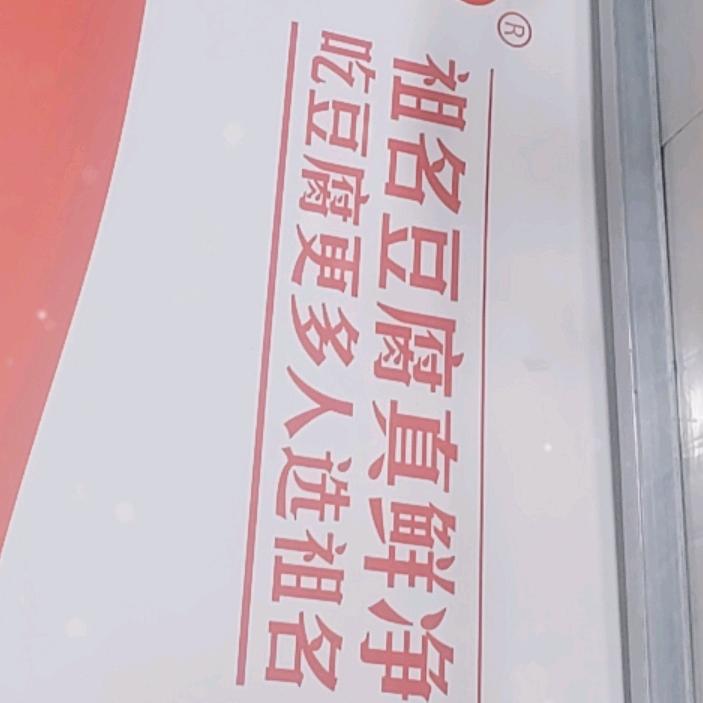 ®
祖名豆腐真鲜净
吃豆腐更多人选祖名